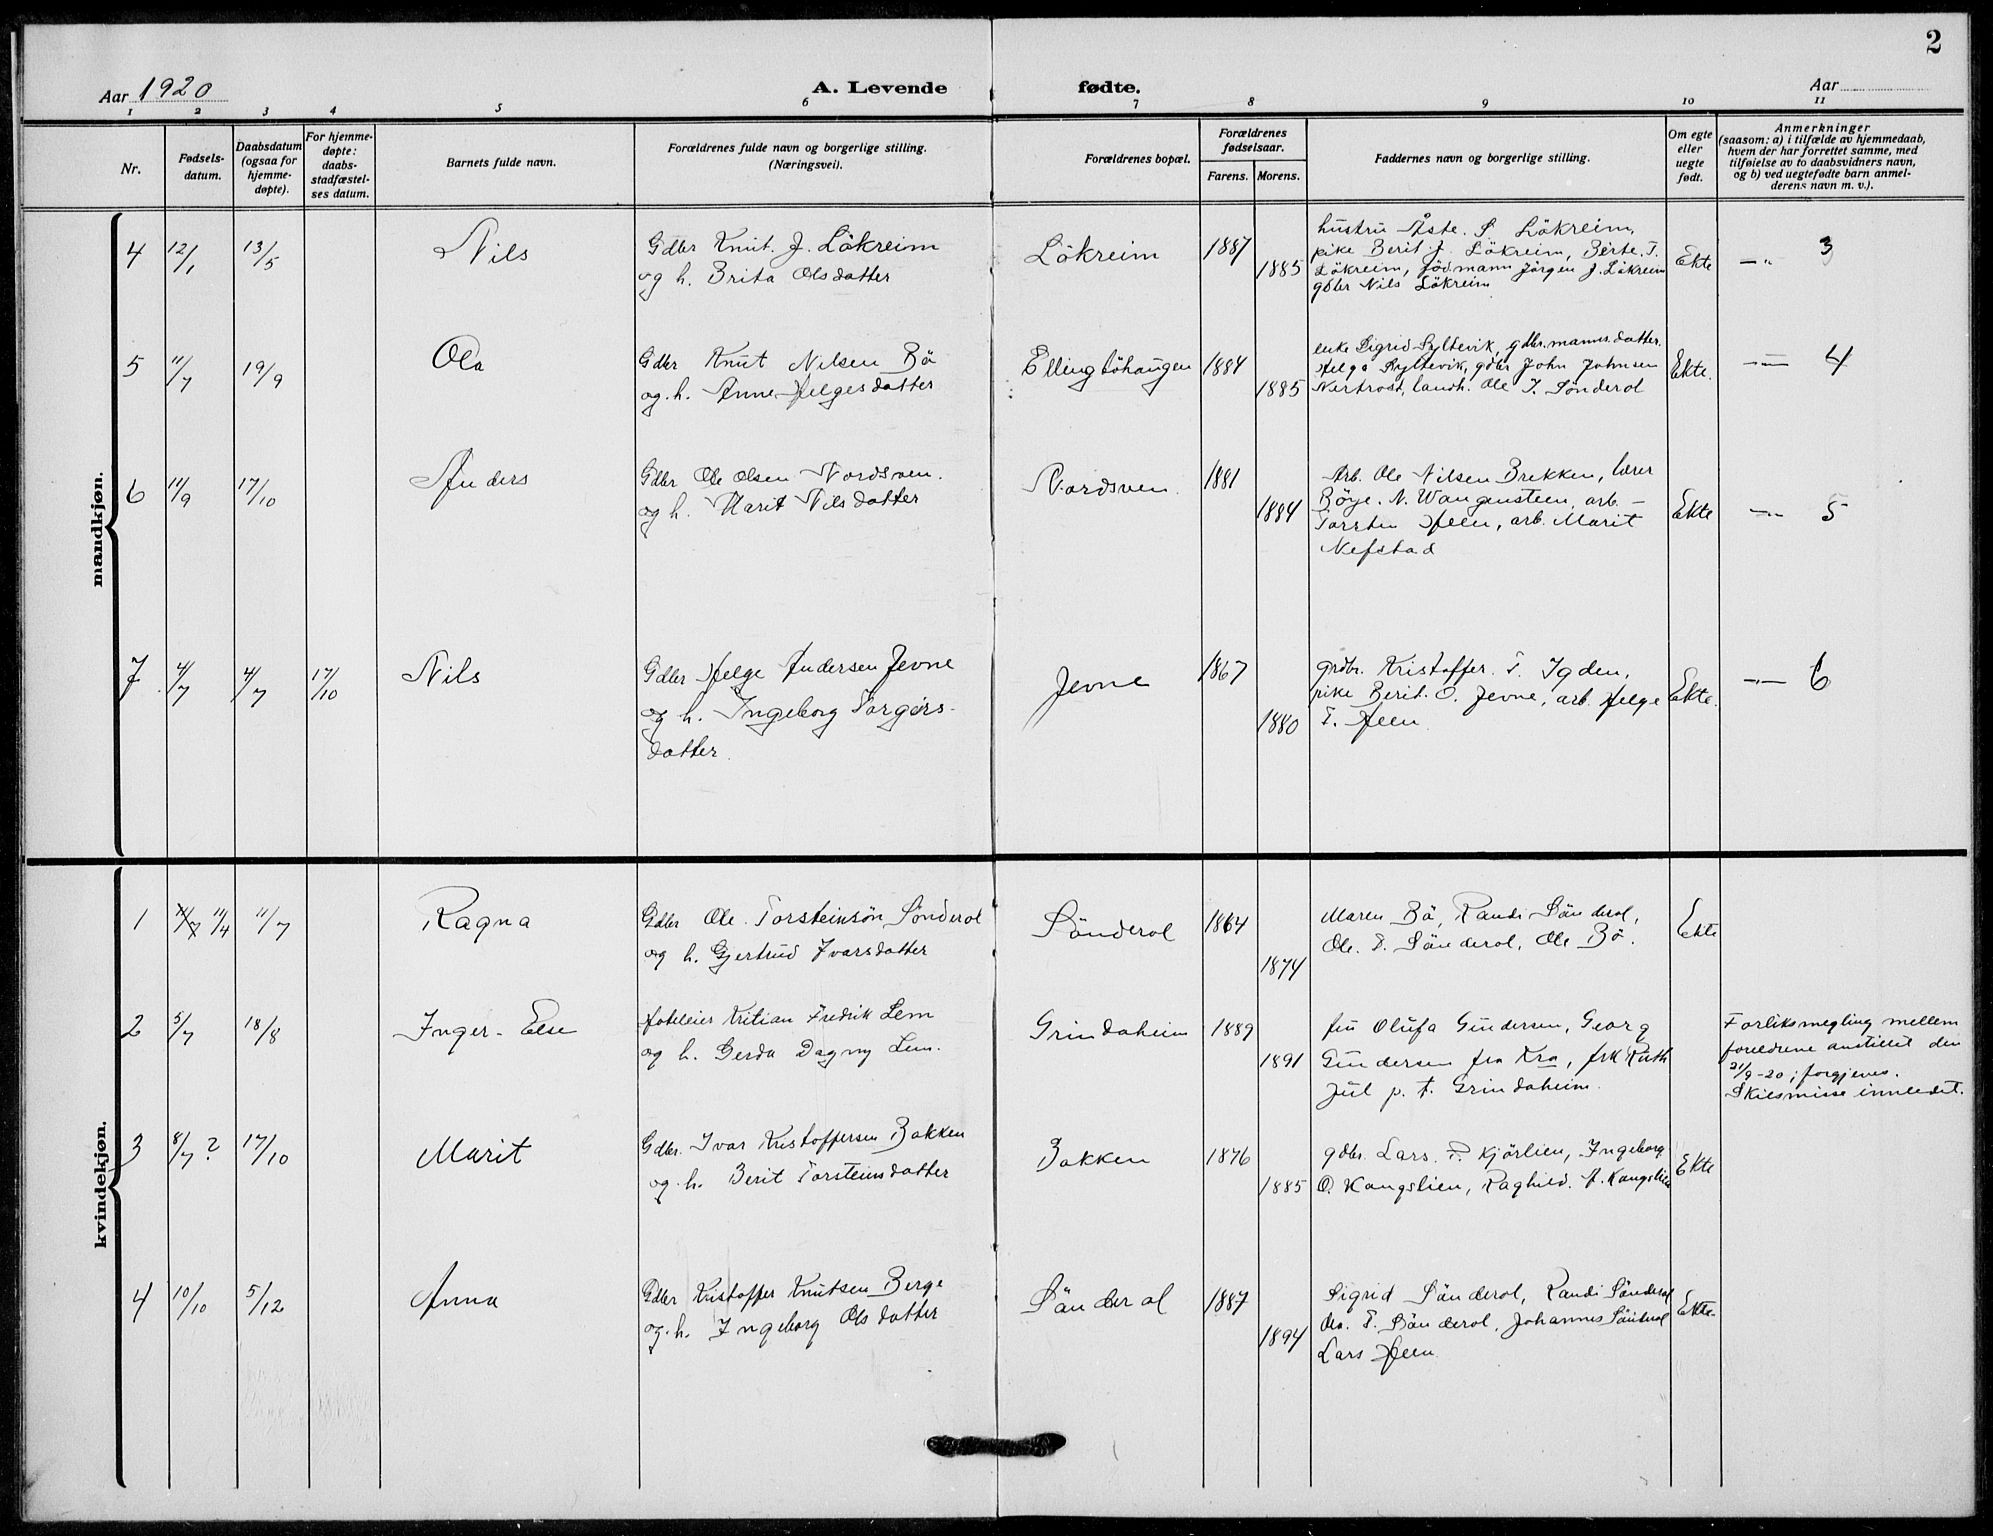 2
Aar 1920
A. Levende fødte.
Aar
1 2 3 4 5 6 7 8 9 10 11
Nr.
Fødsels-
datum.
Daabsdatum
(ogsaa for
hjemme-
døpte).
For hjemme-
døpte:
daabs-
stadfæstel-
ses datum.
Barnets fulde navn.
Forældrenes fulde navn og borgerlige stilling.
(Næringsvei).
Forældrenes bopæl.
Forældrenes
fødselsaar.
Farens. Morens.
Faddernes navn og borgerlige stilling.
Om egte
eller
uegte
født.
Anmerkninger
(saasom: a) i tilfælde av hjemmedaab,
hvem der har forrettet samme, med
tilføielse av to daabsvidners navn,
og b) ved uegtefødte barn anmel-
derens navn m. v.).
mandkjøn.
4 12/1 13/5 Nils
Gdbr Knut. J. Lökreim
og h. Brita Olsdatter
Lökreim 1887
1885
hustru Åste. S. Lökreim,
pike Berit. J. Lökreim, Berte. T.
Lökreim, födmann Jörgen J. Lökreim
gdbr Nils Lökreim
Ekte
—"— 3
5 11/7 19/9 Ola
Gdbr Knut Nilsen Bö
og. h. Anne Helgesdatter
Ellingböhaugen 1884
1885
enke Sigrid Syltevik, gdbr.manns.datter.
Helga Syltevik, gdbr John Johnsen
Nertrost, landh. Ole T. Sönderol
Ekte.
—"— 4
6 11/9 17/10 Anders
Gdbr Ole Olsen Nordsven.
og h. Marit Nilsdatter
Nordsven. 1881
1884
Arb. Ole Nilsen Brekken, lærer
Böye. N. Wangensteen, arb. —
Torsten Heen, arb. Marit
Nefstad
Ekte
—"— 5
7 4/7 4/7 17/10 Nils
Gdbr Helge Andersen Jevne
og h. Ingeborg Torgers-
datter.
Jevne 1867
1880
grdbr. Kristoffer. T. Igden,
pike Berit. O. Jevne, arb. Helge
T. Heen
Ekte.
—"— 6
kvindekjøn.
1 11/7 11/4 11/7 Ragna
Gdbr Ole. Torsteinsön Sönderol
og h. Gjertrud Ivarsdatter
Sönderol 1864
1874
Maren Bö, Randi Sönderol,
Ole. T. Sönderol, Ole Bö.
Ekte
2 5/7 18/8 Inger-Else
Hoteleier Kritian Fredrik Lem
og h. Gerda Dagny Lem.
Grindaheim 1889
1891
fru Olufa Gundersen, Georg
Gundersen fra Kra, frk Ruth
Jul p. t. Grindaheim.
Forliksmegling mellem
foreldrene anstillet den
21/9-20; forgjeves.
Skilsmisse innledet.
3 8/7 ? 17/10 Marit
Gdbr. Ivar Kristoffersen Bakken
og. h. Berit Torsteinsdatter
Bakken 1876
1885
gdbr. Lars. P. Kjörlien, Ingeborg
O. Kangslien, Raghild. A. Kangslien
Ekte
4 10/10 5/12 Anna
Gdbr Kristoffer Knutsen Berge
og. h. Ingeborg Olsdatter
Sönderol 1887
1894
Sigrid Sönderol, Randi Sönderol
Ola. T. Sönderol, Johannes Sönderol
Lars Heen
Ekte.